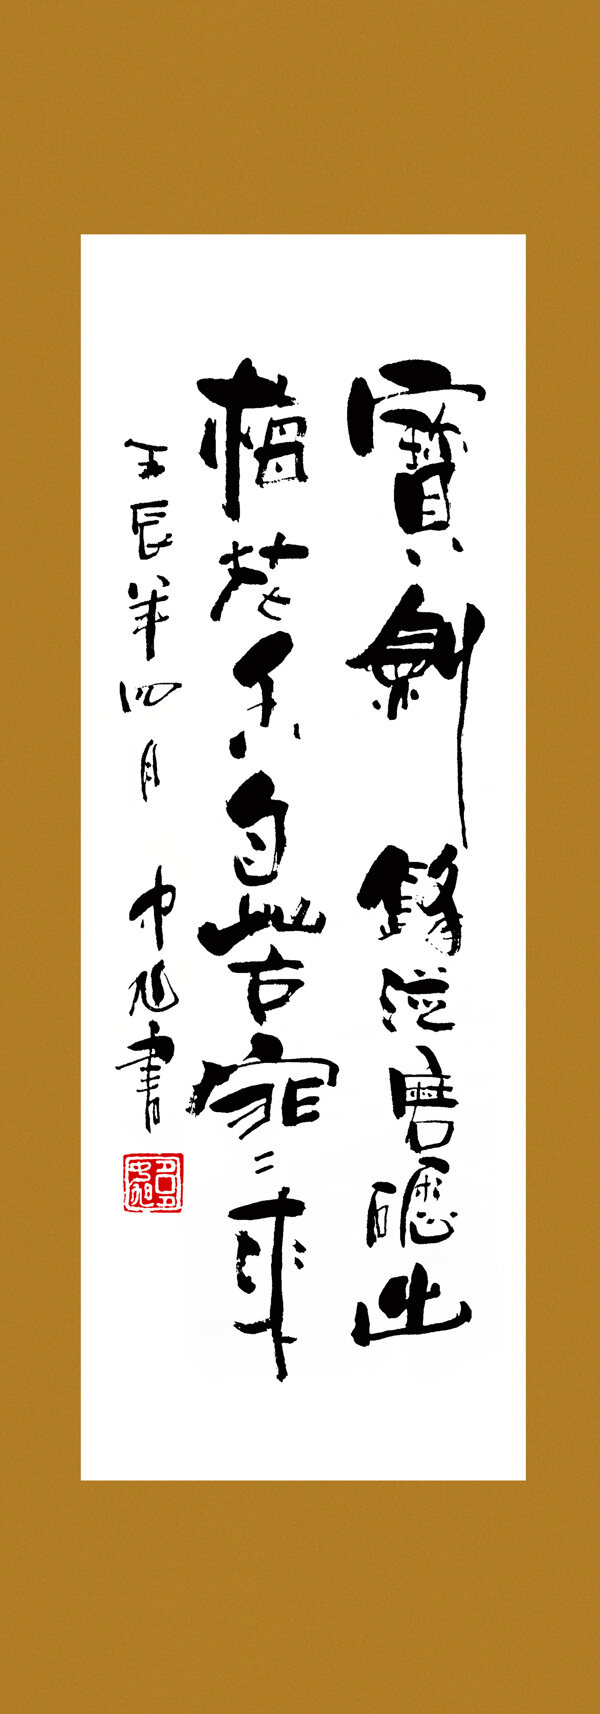 寶劍鋒從磨礪出
梅花香自苦寒來
壬辰年四月 中旭書